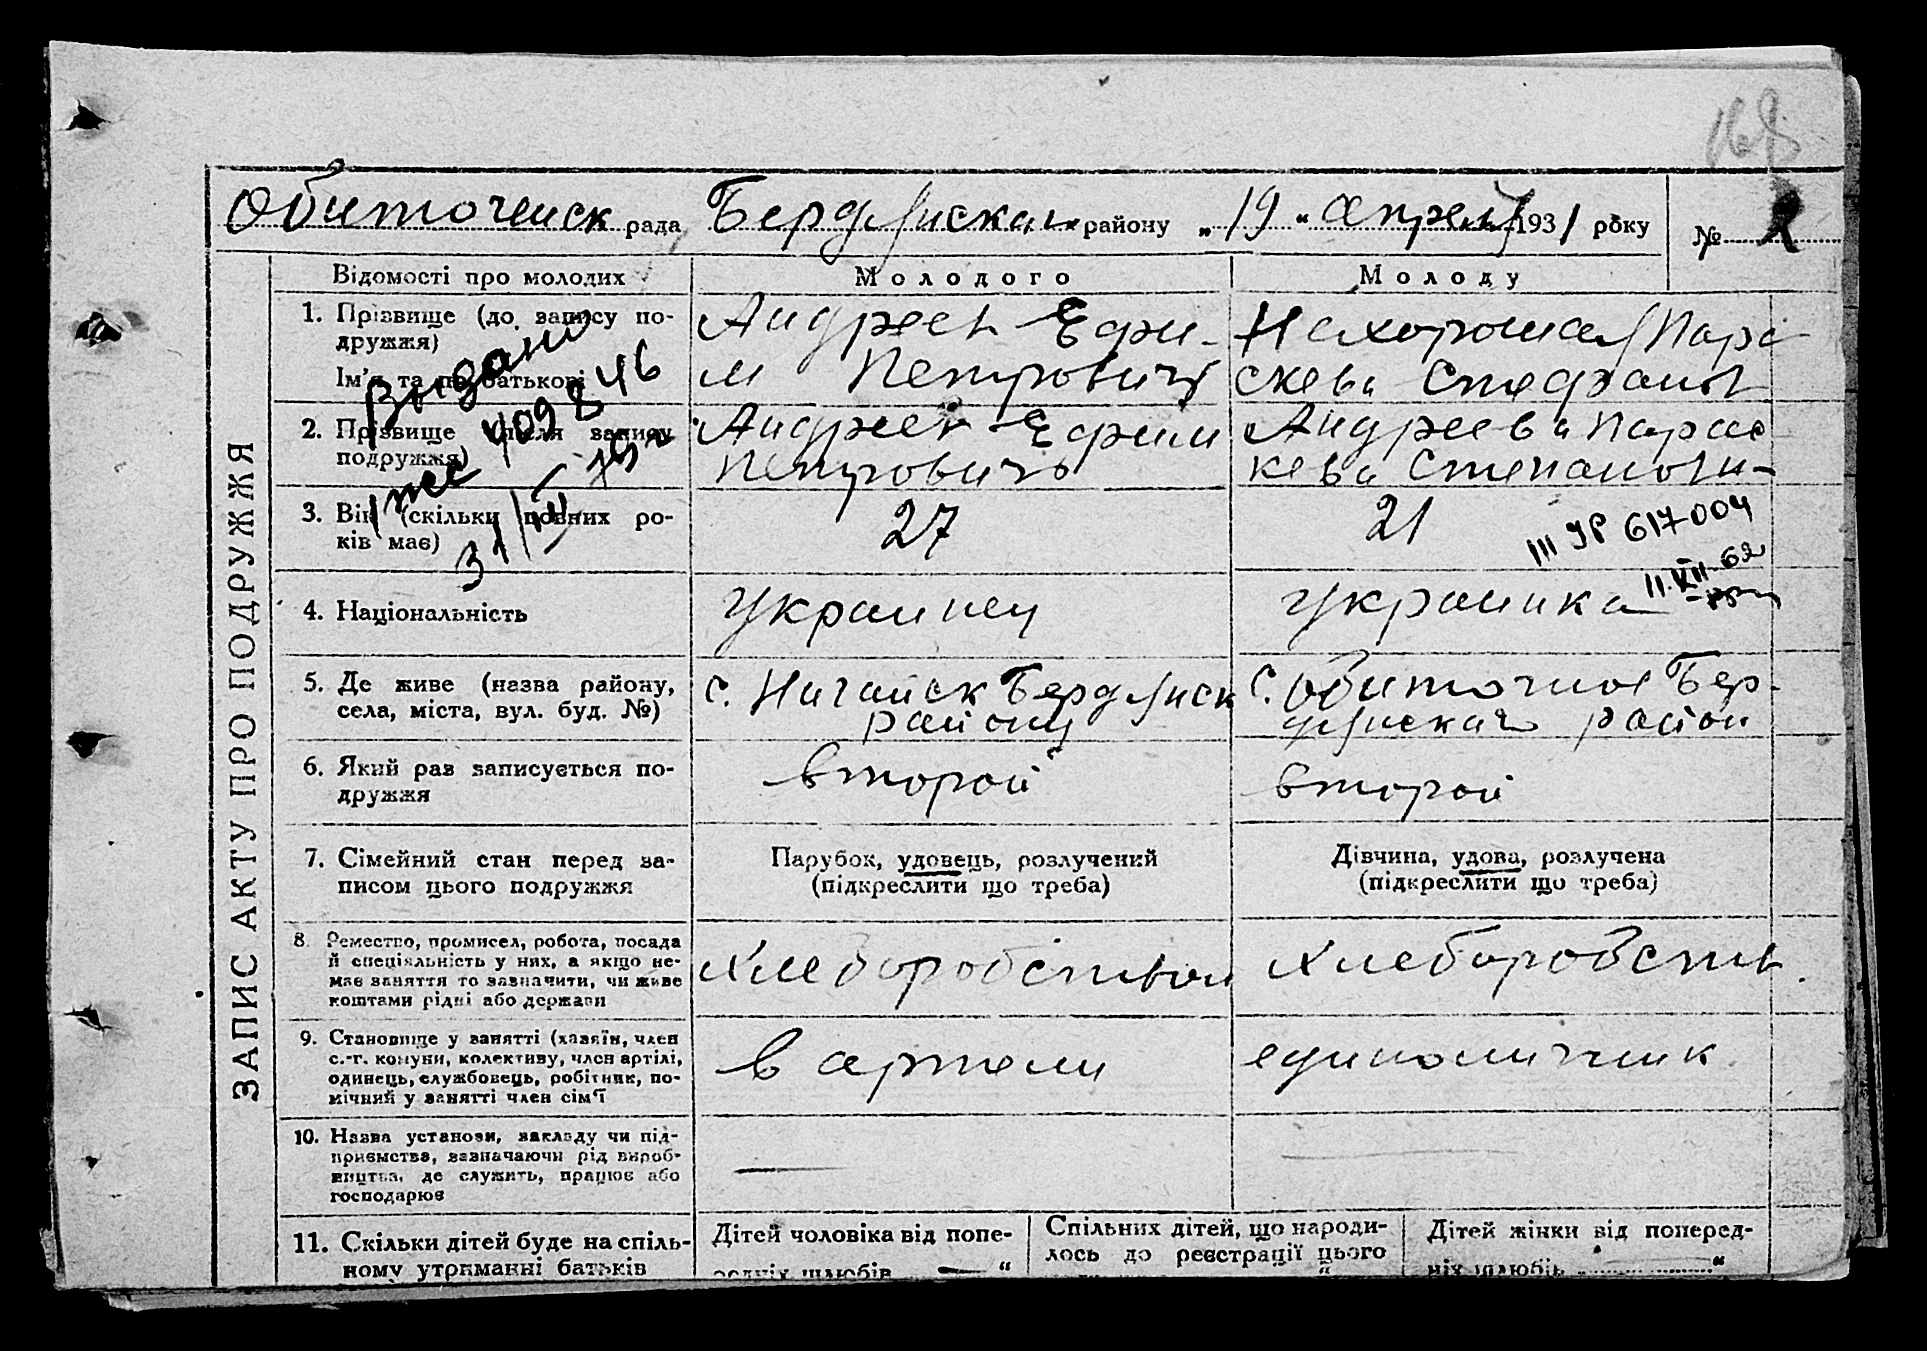 168
Обиточенск рада Бердянскаг району „19“ апреля 1931 року № 2
ЗАПИС АКТУ ПРО ПОДРУЖЖЯ
Відомості про молодих
Молодого
Молоду
1. Прізвище (до запису по-
дружжя)
Ім'я та по батькові
Андреев Ефи-
м Петрович
Нехорошая Парс
скева Стефанов
2. Прізвище (після запису
подружжя)
Андреев Ефим
Петрович
Андреева Парас
кева Степанови-
3. Вік (скільки повних ро-
ків має)
27
21
Выдано
409846
31/III
III ЯР 617004
11.VII-62
4. Національність
Украинец
Украинка
5. Де живе (назва району,
села, міста, вул. буд. №)
с. Нагайск Бердянск
району
с. Обиточное Бер-
дянскаг район
6. Який раз записується по-
дружжя
второй
второй
7. Сімейний стан перед за-
писом цього подружжя
Парубок, удовець, розлучений
(підкреслити що треба)
Дівчина, удова, розлучена
(підкреслити що треба)
8. Ремество, промисел, робота, посада
й спеціяльність у них, а якщо не-
має заняття то зазначити, чи живе
коштами рідні або держави
Хлеборобством
Хлеборобств.
9. Становище у занятті (хазяїн, член
с.-г. комуни, колективу, член артілі,
одинець, службовець, робітник, по-
мічний у занятті член сім'ї
в артели
единоличник
10. Назва установи, закладу чи під-
приємства, зазначаючи рід вироб-
ництва, де служить, працює або
господарює
11. Скільки дітей буде на спіль-
ному утриманні батьків
Дітей чоловіка від попе-
редніх шлюбів — “
Спільних дітей, що народи-
лось до реєстрації цього
Дітей жінки від поперед-
ніх шлюбів “